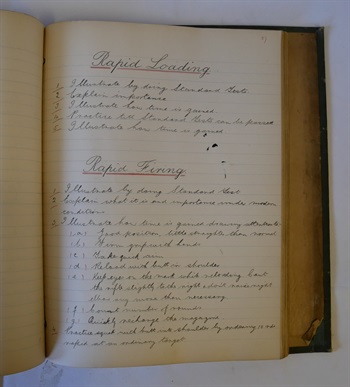 Rapid Loading
1. Illustrate by doing Standard Tests.
2. Explain importance
3. Illustrate how time is gained.
4. Practice till Standard Tests can be passed.
5. Illustrate how time is gained.
Rapid Firing
1. Illustrate by doing Standard Test
2. Explain what it is and importance under modern
conditions.
3. Illustrate how time is gained drawing attention to
(a) Good position, little straighter than normal
(b) Firm grip with hands
(c) Take quick aim
(d) Reload with butt in shoulder
(e) Keep eye on the mark while reloading, cant
the rifle slightly to the right & don't raise right
elbow any more than necessary
(f) Count number of rounds
(g) Quickly recharge the magazine
Practice squad with butt into shoulder by ordering
rapid at an ordinary target.